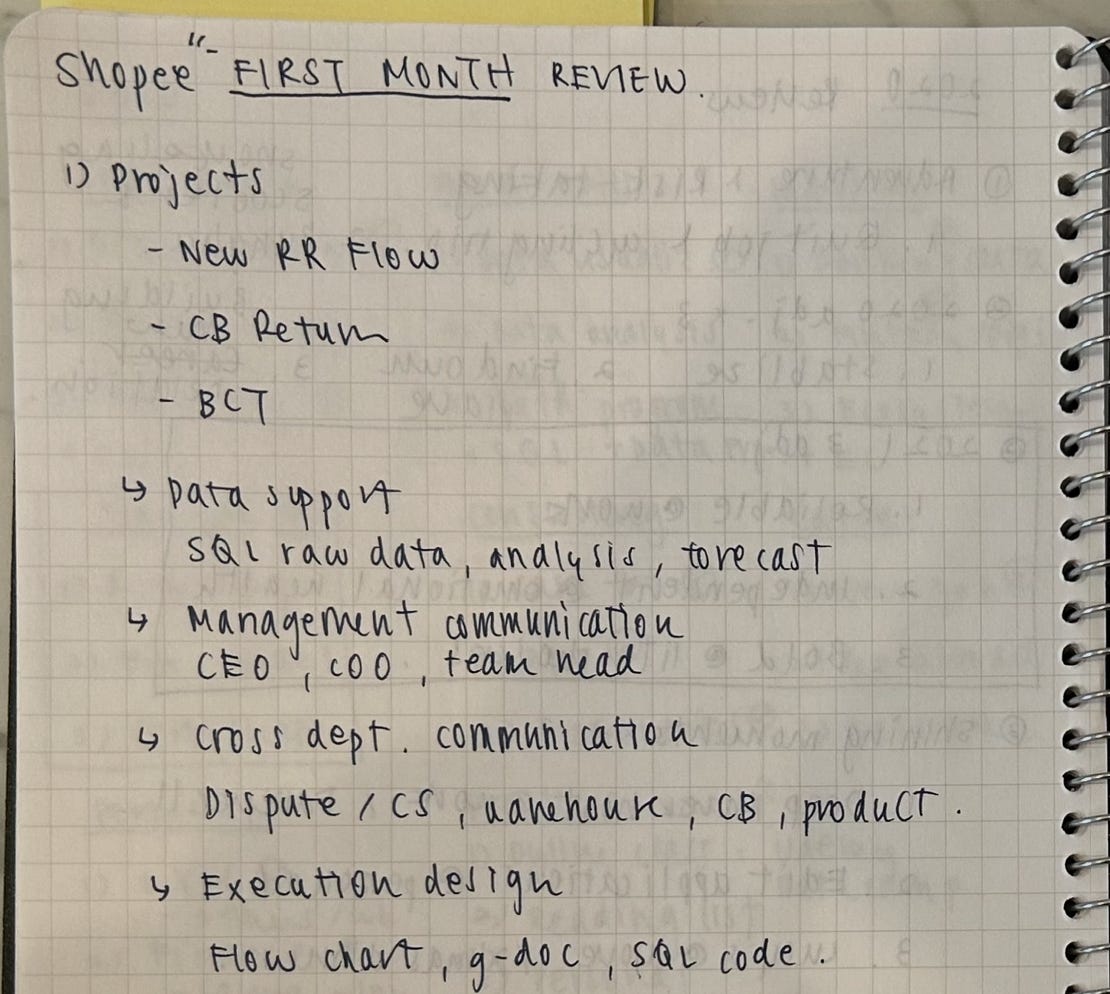 Shopee "- FIRST MONTH REVIEW.
1) Projects
- New RR Flow
- CB Return
- BCT
↳ Data support
SQL raw data, analysis, forecast
↳ Management communication
CEO, COO, team head
↳ cross dept. communication
Dispute / CS, warehouse, CB, product.
↳ Execution design
Flow chart, g-doc, SQL code.